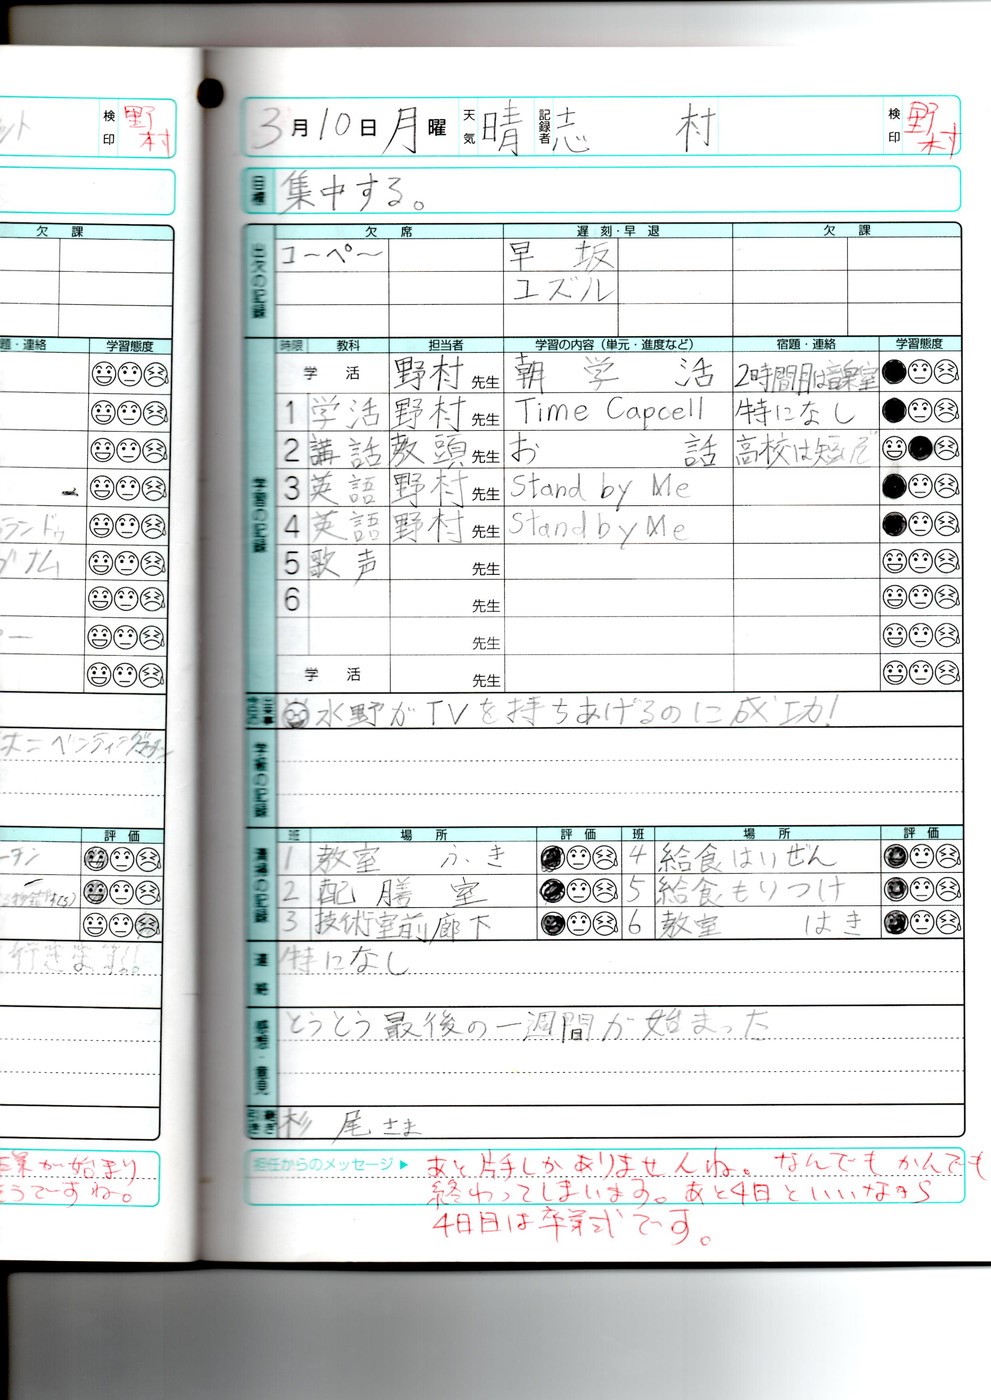 検印 野村
欠 課
題・連絡 学習態度
評 価
3月10日月曜 天気 晴 記録者 志 村 検印 野村
目標 集中する。
出欠の記録 欠 席 遅 刻・早 退 欠 課
コーペー 早 坂
ユズル
学習の記録 時限 教科 担当者 学習の内容(単元・進度など) 宿題・連絡 学習態度
学 活 野村先生 朝 学 活 2時間目は音楽室
1 学活 野村先生 Time Capcell 特になし
2 講話 教頭先生 お 話 高校は短いぞ
3 英語 野村先生 Stand by Me
4 英語 野村先生 Stand by Me
5 歌声 先生
6 先生
先生
学 活 先生
水野がTVを持ちあげるのに成功!
学級の記録
清掃の記録 班 場 所 評 価 班 場 所 評 価
1 教室 ふき 4 給食はいぜん
2 配 膳 室 5 給食もりつけ
3 技術室前廊下 6 教室 はき
連絡 特になし
感想・意見 とうとう最後の一週間が始まった
引き継ぎ 杉 尾さま
担任からのメッセージ▶ あと片手しかありませんね。なんでもかんでも
終わってしまいます。あと4日といいながら
4日目は卒業式です。
業が始まり
そうですね。